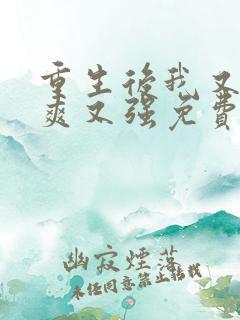 重生后我又
爽又强免费
幽寂煙落
未经同意禁止转载